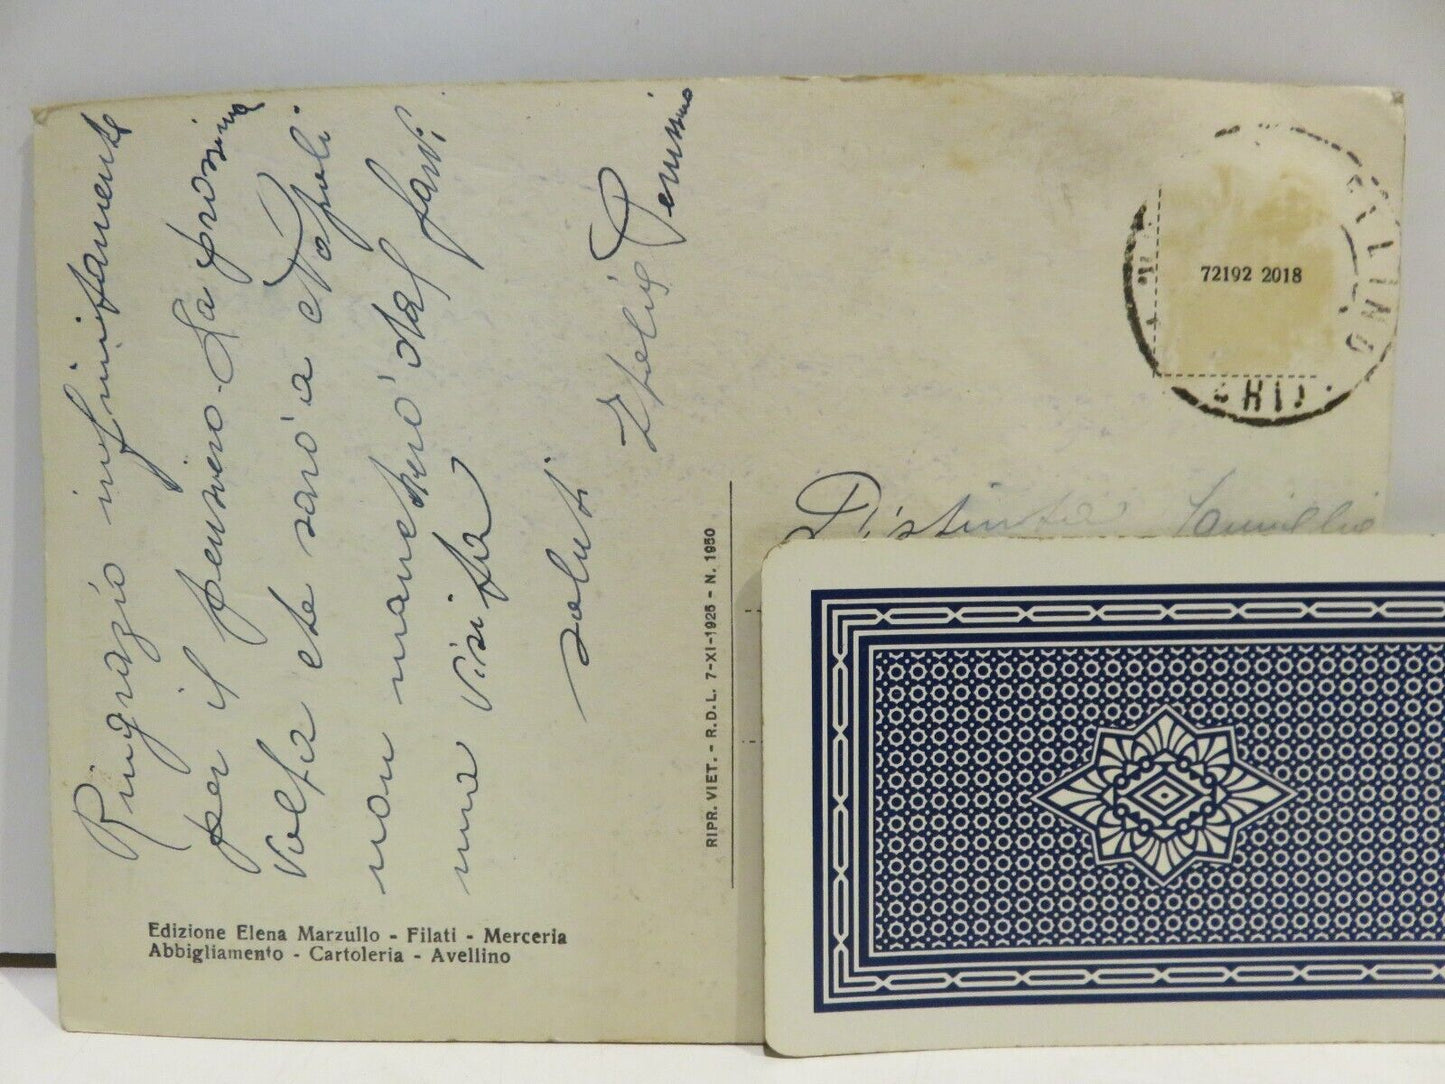 Ringrazio infinitamente
per il pensiero. La prossima
volta che sarò a Napoli
non mancherò dal farVi
una visita
saluti
Pennino
Distinta Famiglia
72192 2018
RIPR. VIET. - R.D.L. 7-XI-1925 - N. 1950
Edizione Elena Marzullo - Filati - Merceria
Abbigliamento - Cartoleria - Avellino